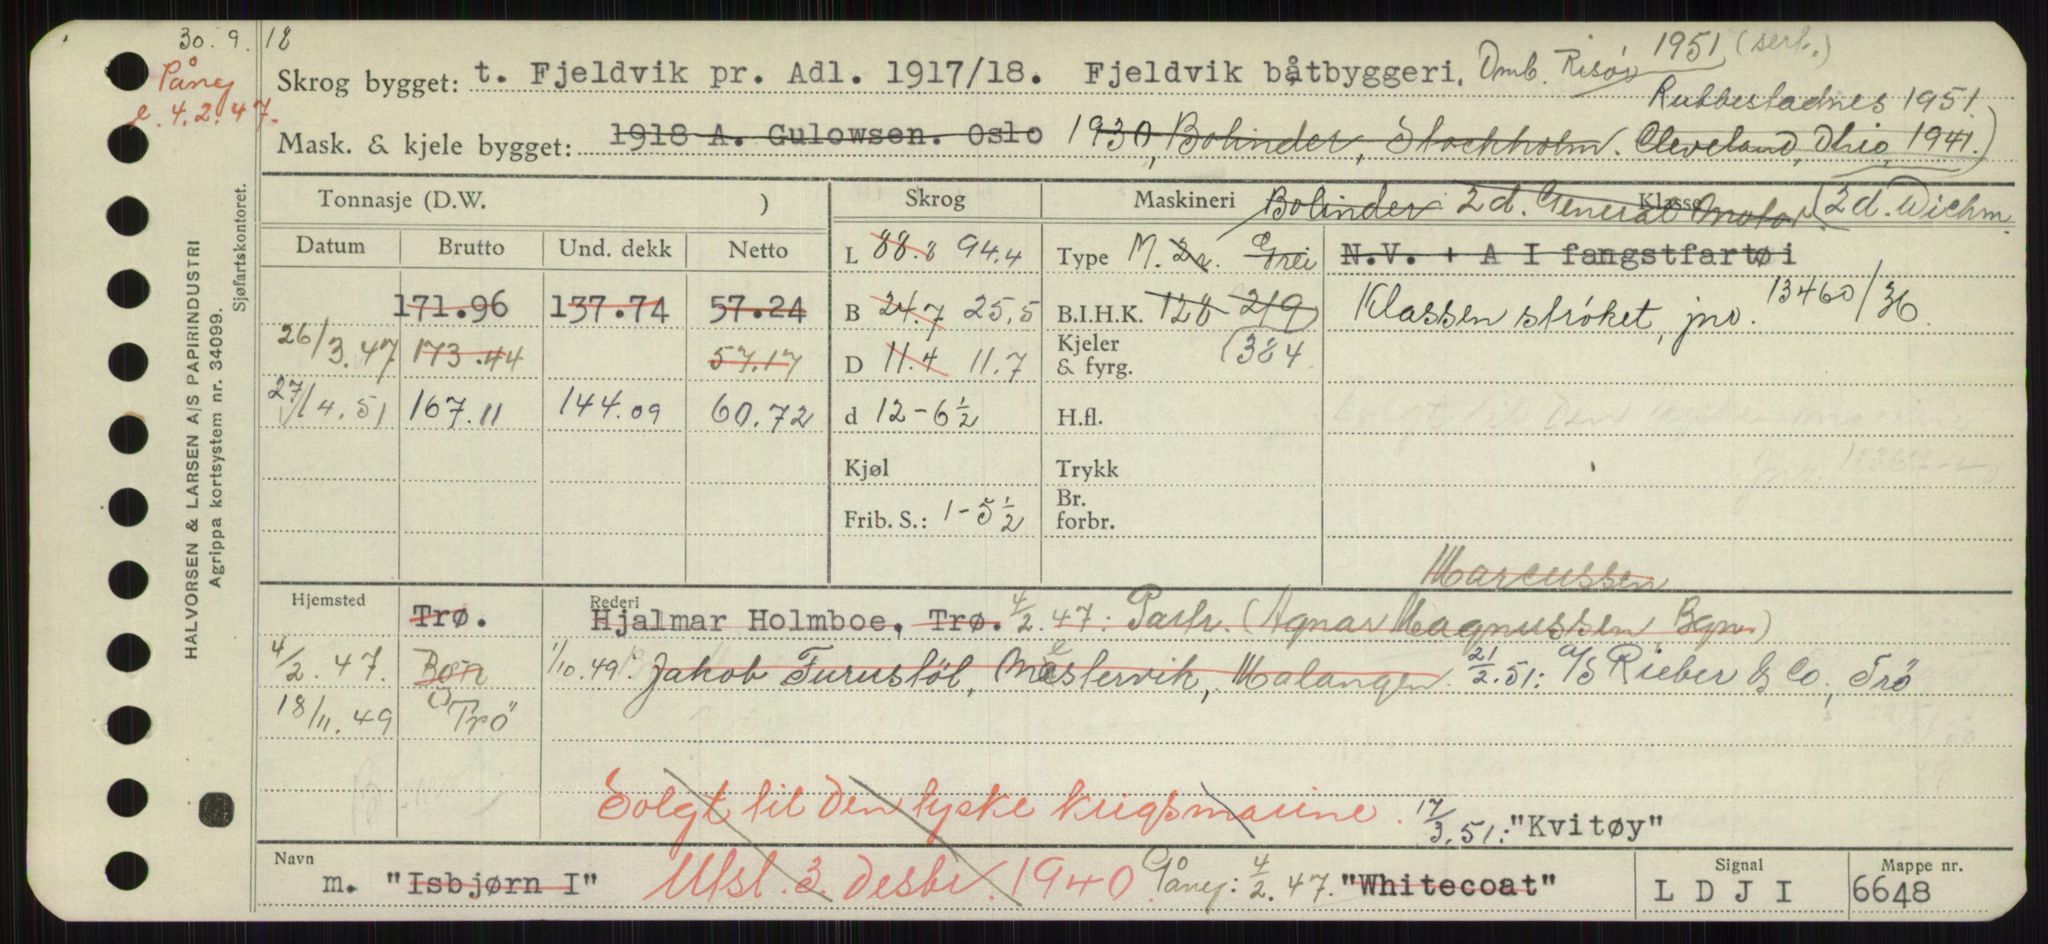 30. 9. 18
Påny
e. 4.2.47.
Skrog bygget: t. Fjeldvik pr. Adl. 1917/18. Fjeldvik båtbyggeri. Omb. Risør 1951 (sert.)
Rubbestadnes 1951.
Mask. & kjele bygget: 1918 A. Gulowsen. Oslo 1930, Bolinder, Stockholm. Cleveland, Ohio, 1941.)
Tonnasje (D.W. ) Skrog Maskineri Bolinder 2 d. General Motor. Klasse (2 d. Wichm.
Datum Brutto Und. dekk Netto L 88.8 94.4 Type M. 2 Grei N.V. + A I fangstfartøi
171.96 137.74 57.24 B 24.7 25.5 B.I.H.K. 128 219) Klassen strøket, jno. 13460/36.
26/3.47 173.44 57.17 D 11.4 11.7 Kjeler & fyrg. (384
27/4.51 167.11 144.09 60.72 d 12-6½ H.fl.
Kjøl Trykk
Frib. S.: 1-5½ Br. forbr.
Marcussen
Hjemsted Trø. Rederi Hjalmar Holmboe, Trø. 4/2.47: Partr. (Agnar Magnussen Bgn)
4/2.47. Bgn 1/10.49. Jakob Furustöl, Mestervik, Malangen. 21/2.51: A/S Rieber & Co., Trö
18/11.49 Trö
Solgt til den tyske krigsmarine. 17/3.51: "Kvitøy"
Navn m. "Isbjørn I" Utsl. 3. desbr. 1940. Påny: 4/2.47. "Whitecoat" Signal L D J I Mappe nr. 6648
HALVORSEN & LARSEN A/S PAPIRINDUSTRI
Agrippa kortsystem nr. 34099.
Sjøfartskontoret.